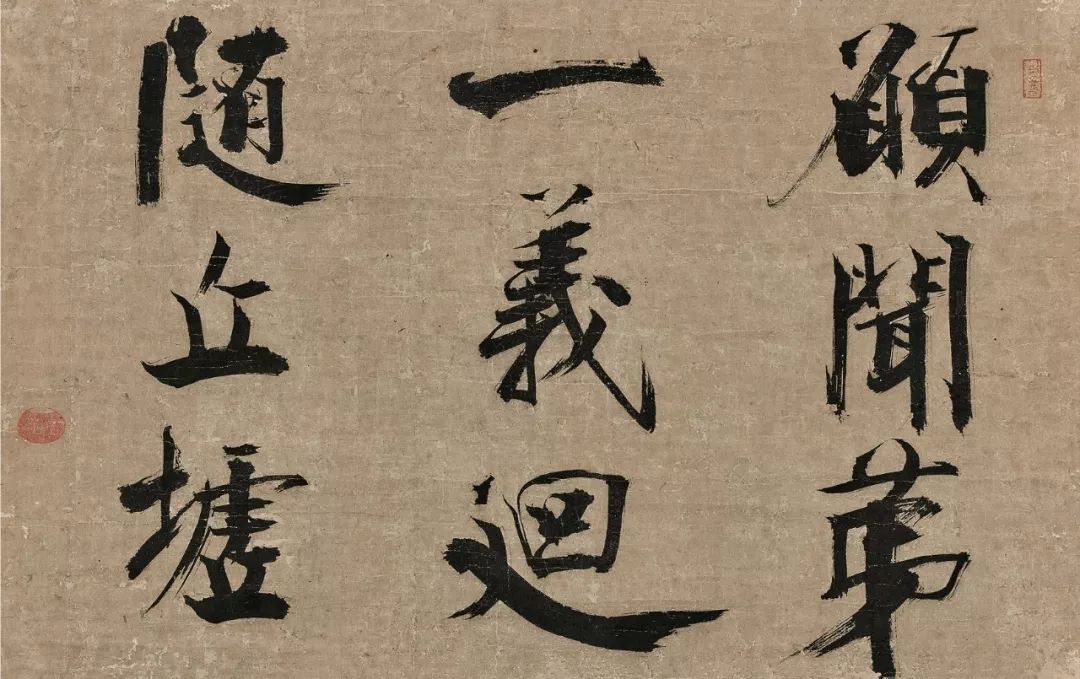 願聞第
一義迴
随丘墟